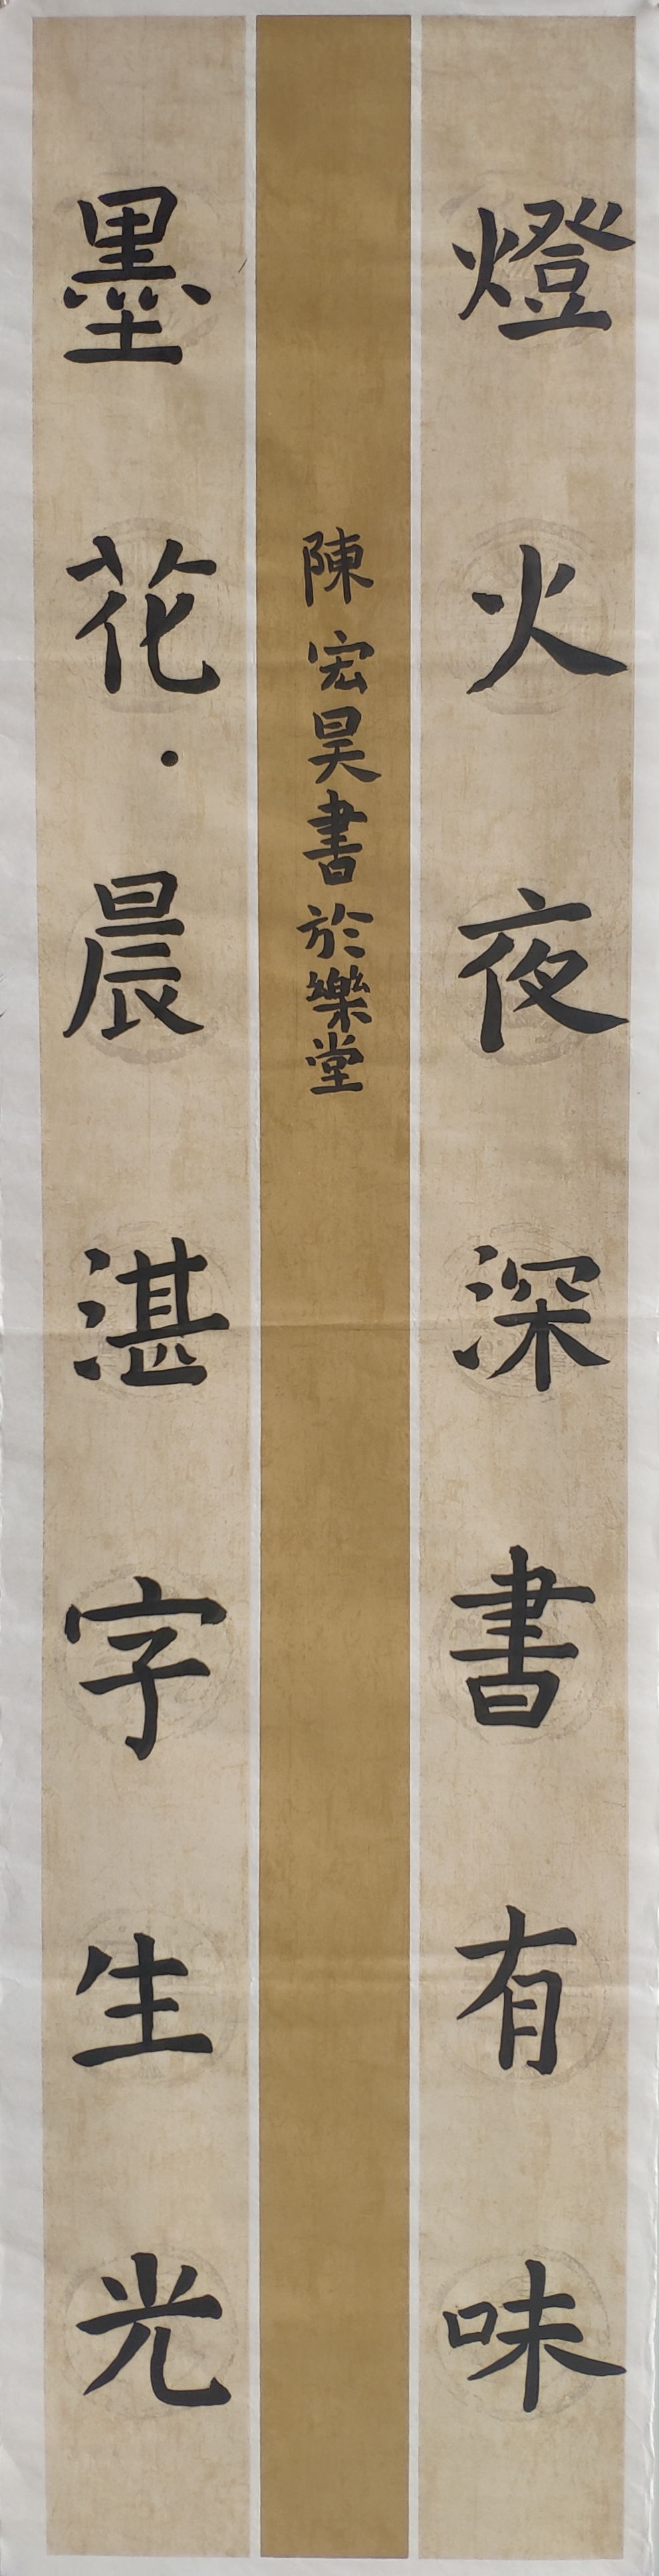 燈火夜深書有味
墨花·晨湛字生光
陳宏昊書於樂堂